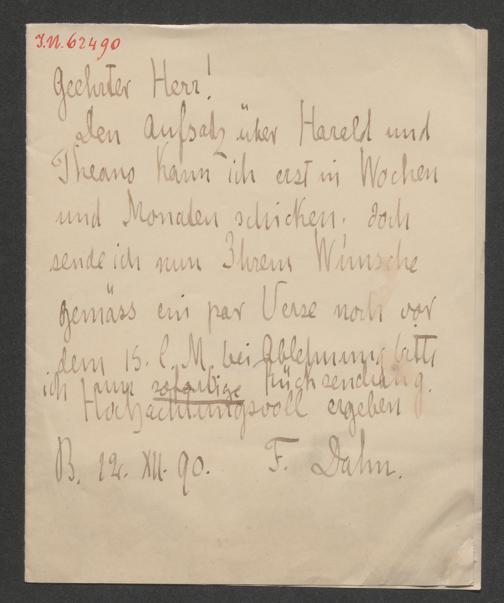 I.N. 62490
Geehrter Herr!
Den Aufsatz über Harald und
Theano kann ich erst in Wochen
und Monaten schicken. doch
sende ich nun Ihrem Wunsche
gemäss ein par Verse noch vor
dem 15. l. M. bei Ablehnung bitte
ich um sofortige Rücksendung.
Hochachtungsvoll ergeben
B. 12. XII. 90. F. Dahn.